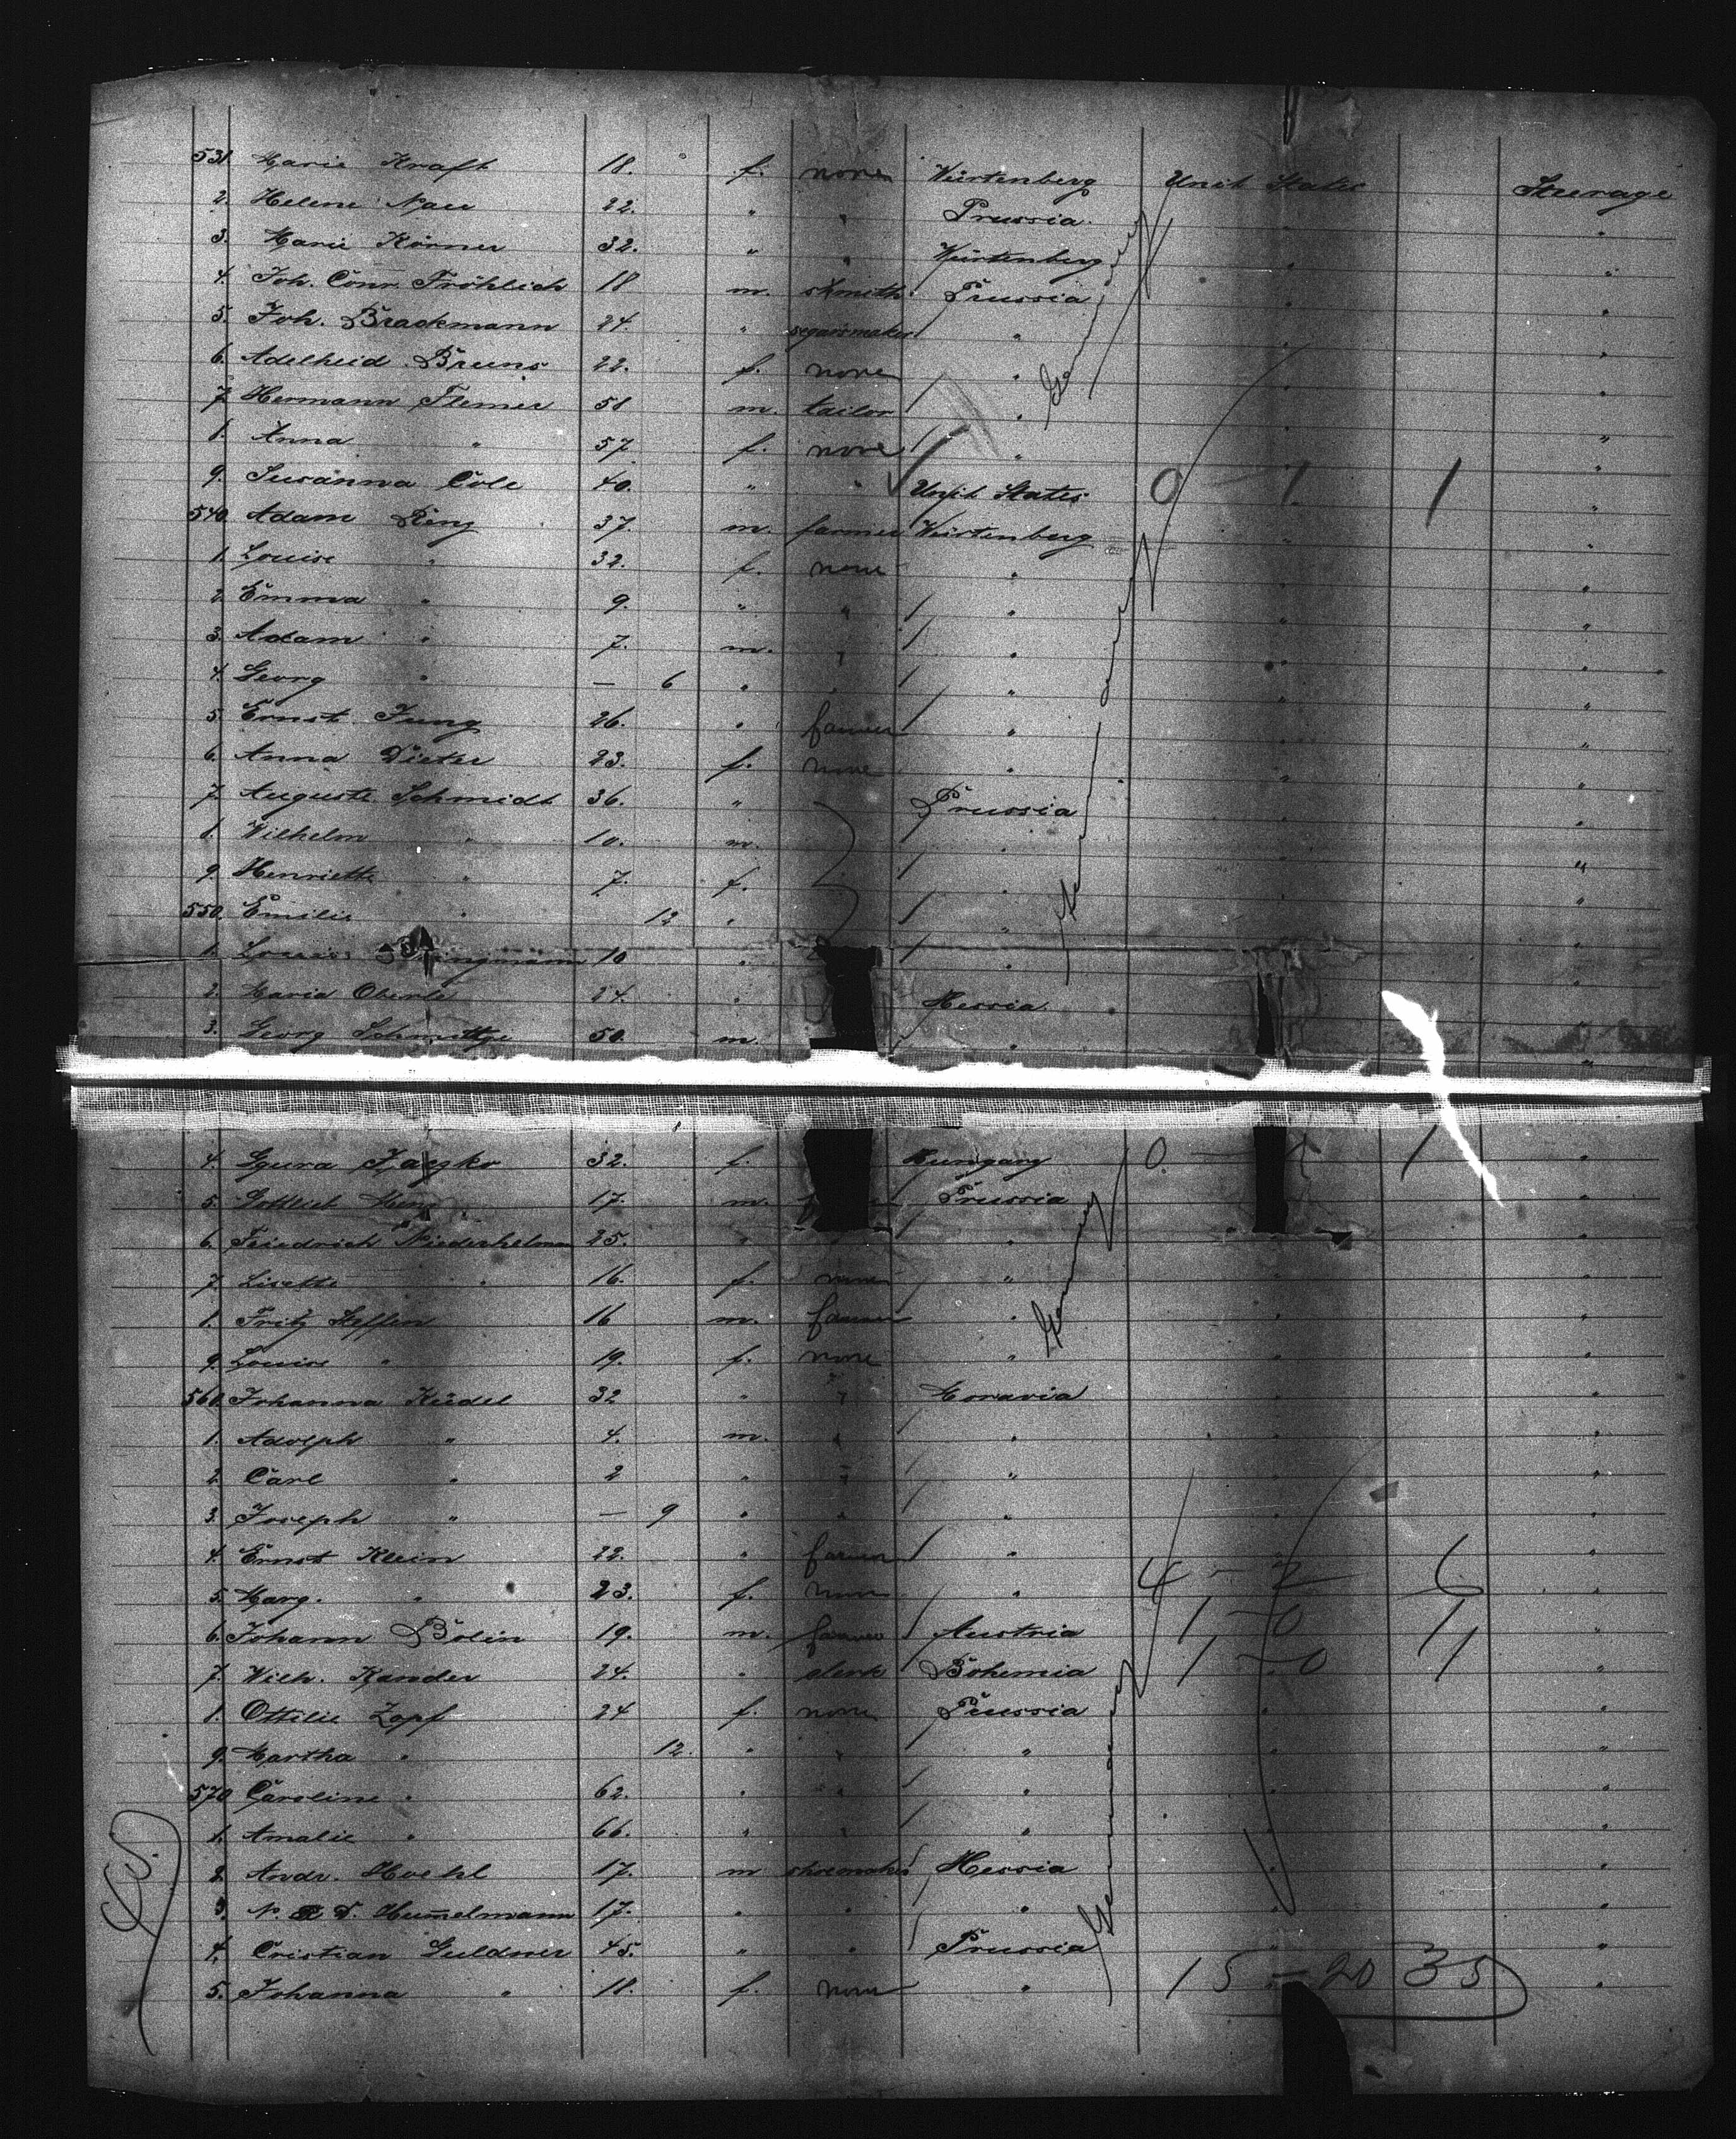 531. Marie Kraft 18. f. none Würtenberg Unit States Steerage
2. Helene Nau 22. " " Prussia. " "
3. Marie Körner 32. " " Würtenberg " "
4. Joh. Conr. Fröhlich 18 m. smith Prussia " "
5. Joh. Brackmann 24. " segarsmaker " " "
6. Adelheid Bruns 22. f. none " " "
Germany
7. Hermann Flemer 58 m. tailor " " "
8. Anna " 57. f. none " " "
9. Susanna Cole 40. " " Unit States 0 - 1 1 "
540. Adam Renz 37. m. farmer Würtenberg " "
1. Louise " 32. f. none " " "
2. Emma " 9. " " " " "
3. Adam " 7. m. " " " "
4. Georg " — 6 " " " " "
5. Ernst Jung 26. " farmer " " "
6. Anna Dieter 23. f. none " " "
7. Auguste Schmidt 36. " Prussia " "
8. Wilhelm " 10. m. " " "
9. Henriette " 7. f. " " "
550. Emilie " 12 " " " "
Germany
1. Louise 10 " " " "
2. Maria Oberle 24. " Hessia. " "
3. Georg Schmittge 50. m. " "
4. 32. f. Hungary 0 - 1 1 "
5. Gottlieb 17. m. Prussia "
6. Friedrich Niederhelman 25. " " " "
7. Lisette " 16. f. none " " "
8. Fritz Steffen 16 m. farmer " " "
Germany
9. Louise " 19. f. none " " "
560. Johanna Kúdel 32 " " Moravia " "
1. Adolph " 4. m. " " " "
2. Carl " 2 " " " " "
3. Joseph " — 9 " " " " "
4. Ernst Klein 22. " farmer " " "
5. Marg. " 23. f. none " 4 - 2 6 "
6. Johann Bolin 19. m. farmer Austria 1 - 0 1 "
7. Wilh. Kander 24. " clerk Bohemia 1 - 0 1 "
8. Ottilie Zopf 24 f. none Prussia " "
9. Martha " 12. " " " " "
570 Caroline " 62. " " " " "
1. Amalie " 66. " " " " "
2. Andr. Hoehl 17. m shoemaker Hessia " "
3. Hummelmann 17. " " " " "
Germany
4. Cristian Guldner 45. " " Prussia " "
5. Johanna " 18. f. none " 15 - 20 35 "